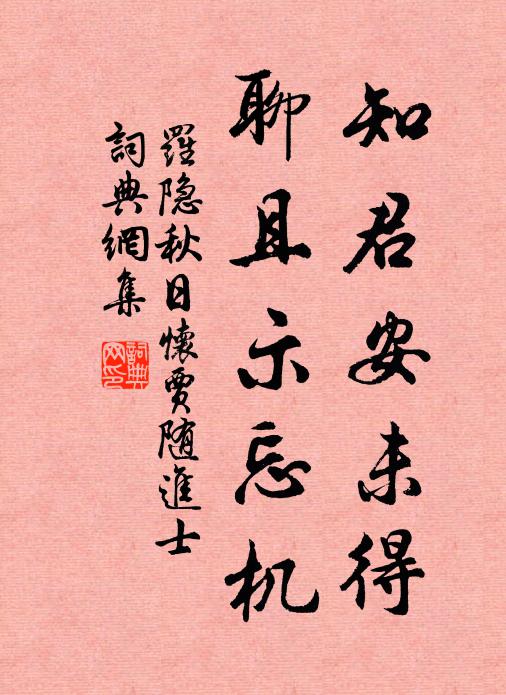 知君安未得
聊且示忘机
羅隐秋日懷賈随進士
詞典網集
詞典
网印